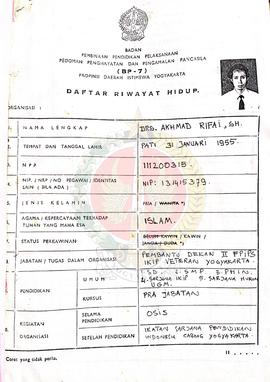 BADAN
PEMBINAAN PENDIDIKAN PELAKSANAAN
PEDOMAN PENGHAYATAN DAN PENGAMALAN PANCASILA
( BP-7 )
PROPINSI DAERAH ISTIMEWA YOGYAKARTA
DAFTAR RIWAYAT HIDUP.
ORGANISASI :
1. NAMA LENGKAP DRS. AKHMAD RIFAI, SH.
2. TEMPAT DAN TANGGAL LAHIR PATI 31 JANUARI 1955.
3. NPP 111200315.
4. NIP. / NRP / NO PEGAWAI / IDENTITAS LAIN ( BILA ADA ) NIP: 131415379.
5. JENIS KELAMIN PRIA / WANITA *)
6. AGAMA / KEPERCAYAAN TERHADAP TUHAN YANG MAHA ESA ISLAM.
7. STATUS PERKAWINAN BELUM KAWIN / KAWIN / JANDA / DUDA *)
JABATAN / TUGAS DALAM ORGANISASI PEMBANTU DEKAN II FPIPS
IKIP VETERAN YOGYAKARTA.
PENDIDIKAN
UMUM 1. SD. 2. SMP 3. PHIN.
4. SARJANA IKIP 5. SARJANA HUKUM
UGM.
KURSUS PRA JABATAN
KEGIATAN ORGANISASI
SELAMA PENDIDIKAN OSIS
SETELAH PENDIDIKAN IKATAN SARJANA PENDIDIKAN
INDONESIA CABANG YOGYAKARTA
Coret yang tidak perlu.